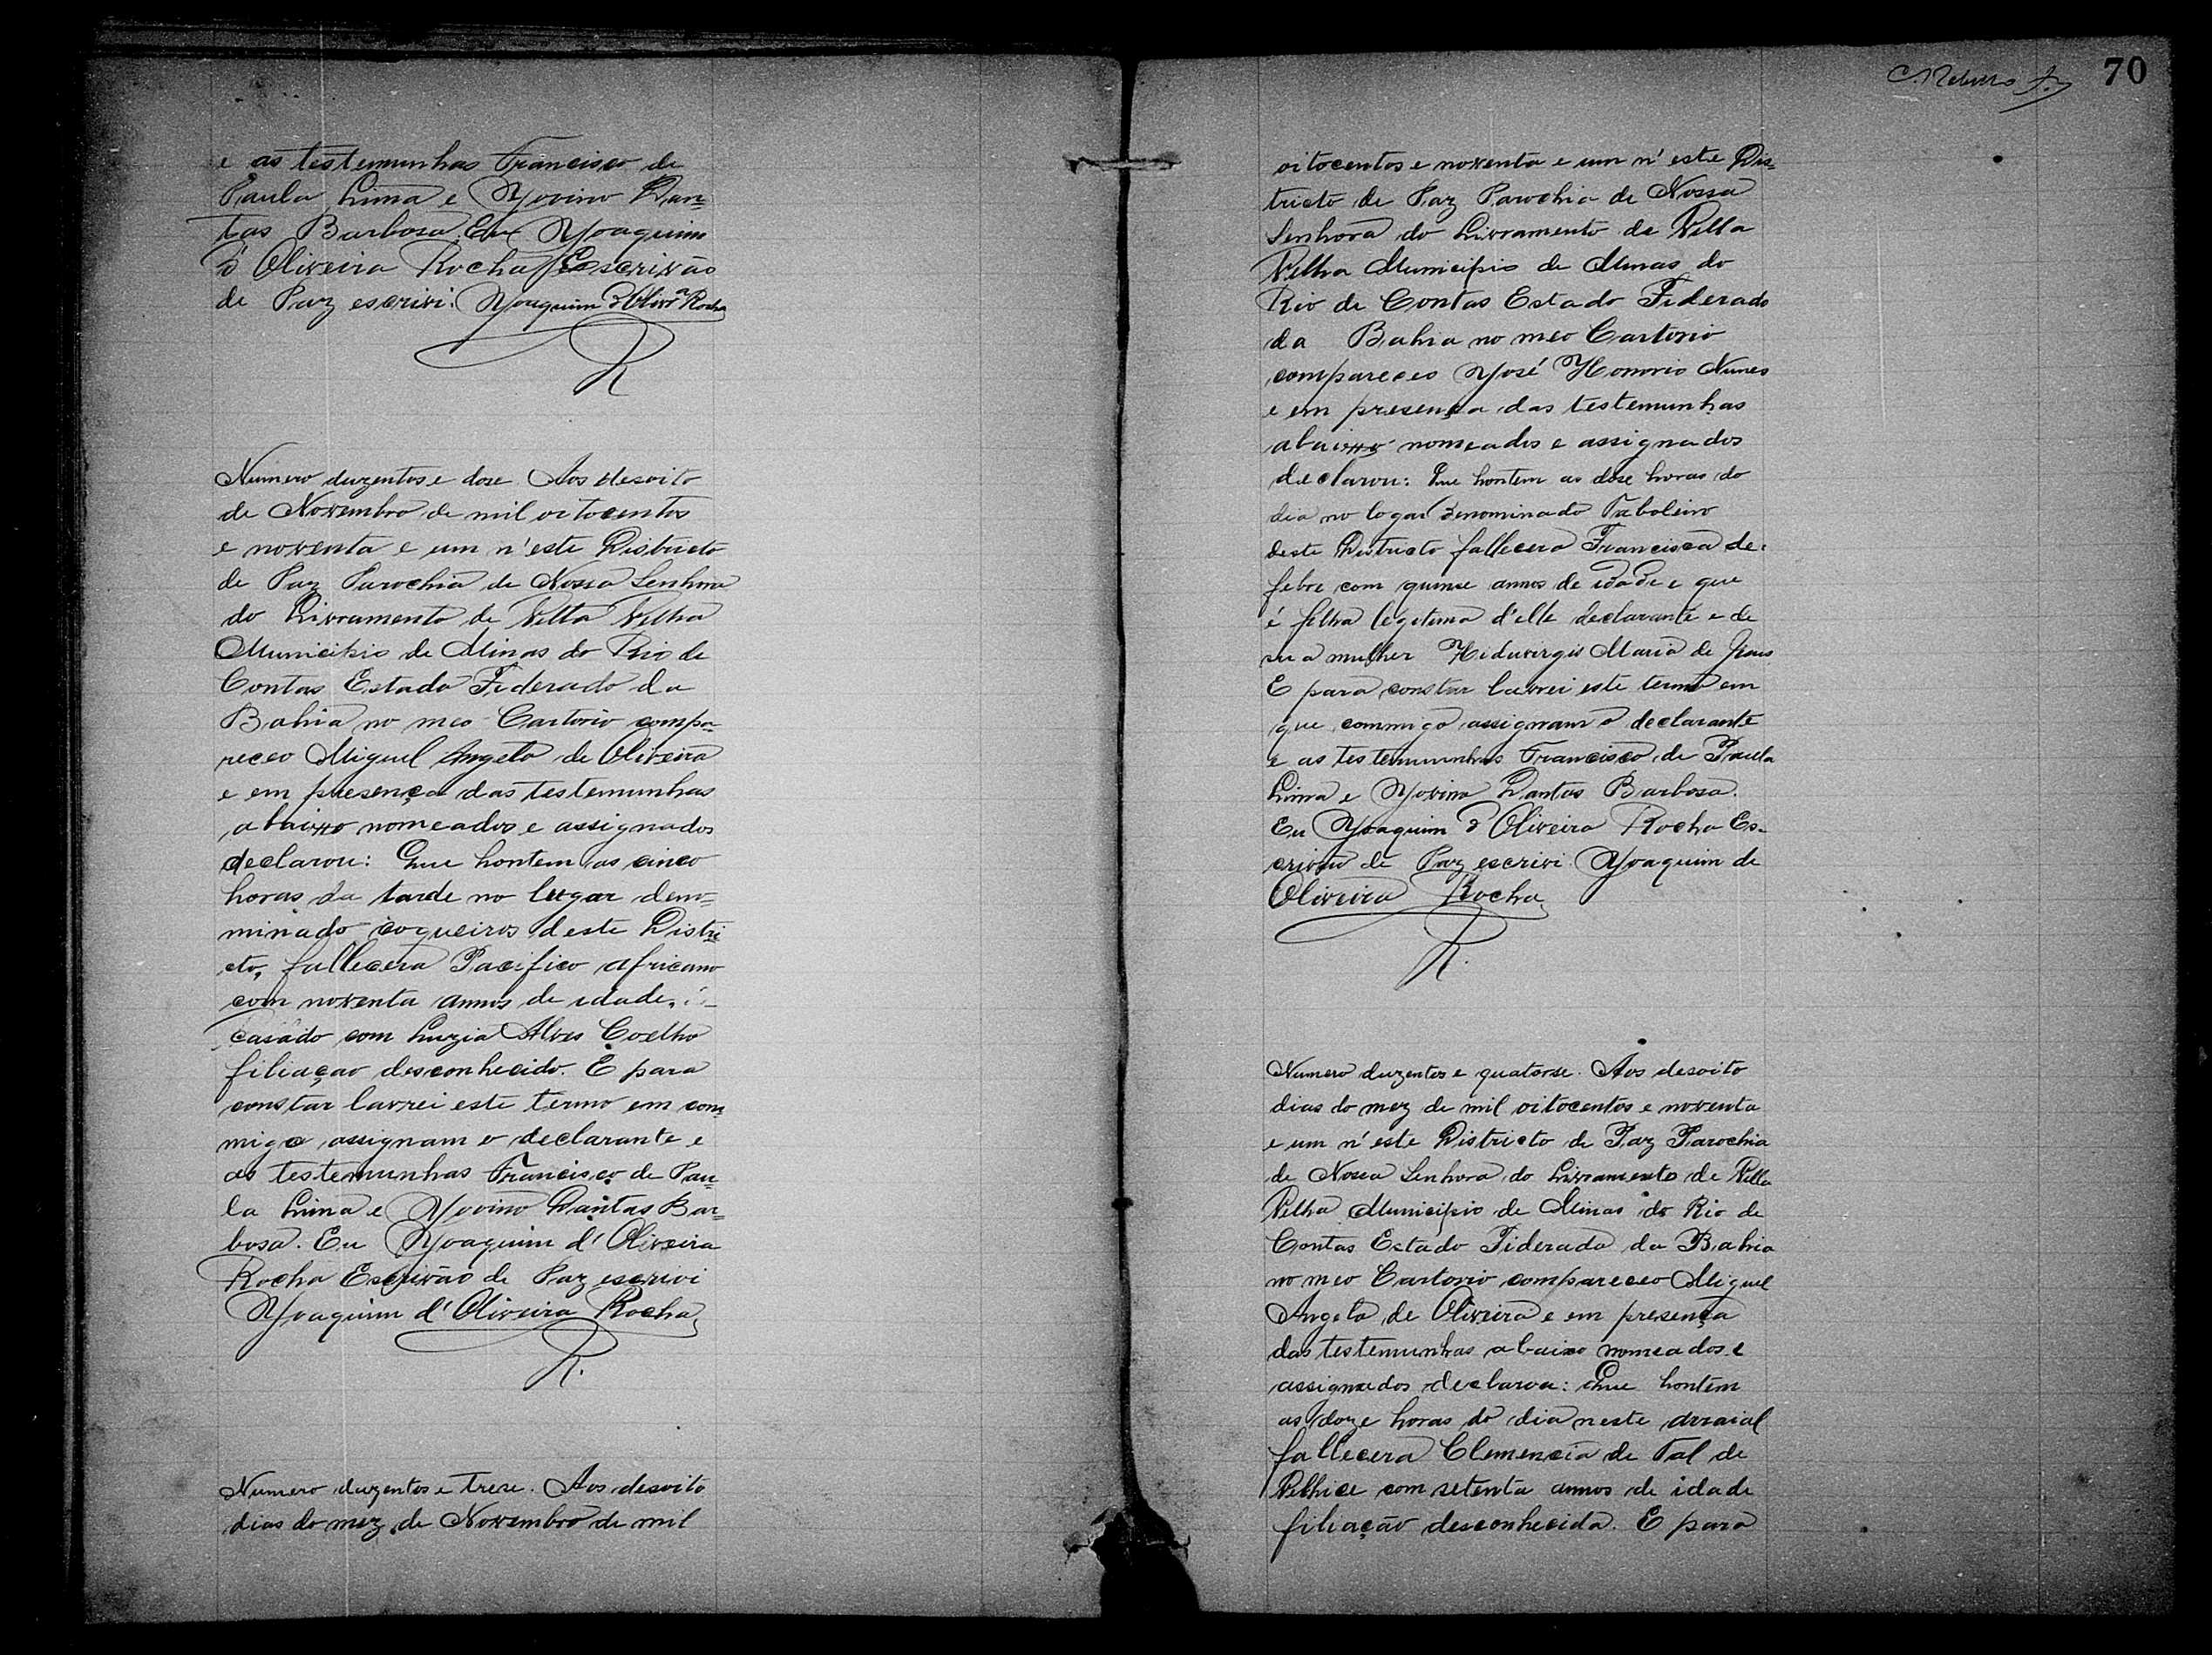 e as testemunhas Francisco de
Paula Lima e Yovino Dan=
tas Barbosa. Eu Yoaquim
d'Oliveira Rocha Escrivão
de Paz escrivi. Yoaquim d'Olivra Rocha
R
Numero duzentos e dose Aos desoito
de Novembro de mil oitocentos
e noventa e um n'este Districto
de Paz Parochia de Nossa Senhora
do Livramento de Villa Velha
Municipio de Minas do Rio de
Contas Estado Federado da
Bahia no meo Cartorio compa=
receo Miguel Angelo de Oliveira
e em presença das testemunhas
abaixo nomeados e assignados
declarou: Que hontem as cinco
horas da tarde no lugar deno=
minado coqueiros deste Distri
cto, fallecera Pacifico africano
com noventa annos de idade, é
casado com Luzia Alves Coelho
filiaçao desconhecido. E para
constar lavrei este termo em com
migo assignam o declarante e
as testemunhas Francisco de Pau=
la Lima e Yovino Dantas Bar=
bosa. Eu Yoaquim d'Oliveira
Rocha Escrivão de Paz escrivi
Yoaquim d'Oliveira Rocha
R.
Numero duzentos e trese. Aos desoito
dias do mez de Novembro de mil
70
oitocentos e noventa e um n'este Dis=
tricto de Paz Parochia de Nossa
Senhora do Livramento de Villa
Velha Municipio de Minas do
Rio de Contas Estado Federado
da Bahia no meo Cartorio
compareceo Yosé Honorio Nunes
e em presença das testemunhas
abaixo nomeados e assignados
declarou: Que hontem as dose horas do
dia no logar denominado Taboleiro
deste Districto fallecera Francisca de
febre com quinse annos de idade e que
é filha legitima d'elle declarante e de
sua mulher Hiduvirgis Maria de Jesus
E para constar lavrei este termo em
que commigo assignam o declarante
e as testemunhas Francisco de Paula
Lima e Yovino Dantas Barbosa.
Eu Yoaquim d'Oliveira Rocha Es-
crivão de Paz escrivi Yoaquim de
Oliveira Rocha
R.
Numero duzentos e quatorse. Aos desoito
dias do mez de mil oitocentos e noventa
e um n'este Districto de Paz Parochia
de Nossa Senhora do Livramento de Villa
Velha Municipio de Minas do Rio de
Contas Estado Federado da Bahia
no meo Cartorio compareceo Miguel
Angelo de Oliveira e em presença
das testemunhas abaixo nomeados e
assignados declarou: Que hontem
as doze horas do dia neste arraial
fallecera Clemencia de Tal de
Velhice com setenta annos de idade
filiação desconhecida. E para